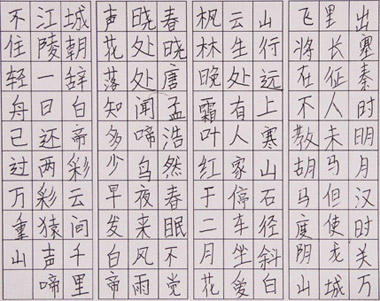 出塞秦时明月汉时关万
里长征人未马但使龙城
飞将在不教胡马度阴山
山行远上寒山石径斜白
云生处有人家停车坐爱
枫林晚霜叶红于二月花
春晓唐孟浩然春眠不觉
晓处处闻啼鸟夜来风雨
声花落知多少早发白帝
城朝辞白帝彩云间千里
江陵一日还两彩猿声啼
不住轻舟已过万重山